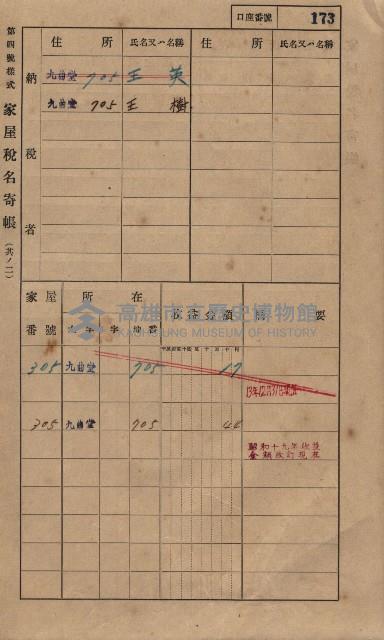 口座番號 173
第四號樣式 家屋稅名寄帳 (其ノ二)
納稅者
住所 氏名又ハ名稱 住所 氏名又ハ名稱
九曲堂 705 王英
九曲堂 705 王樹
家屋番號 所在 收益金額 摘要
大字 字 地番
305 九曲堂 705 17
305 九曲堂 705 44
昭和十九年收益
金額改訂現在
高雄市立歷史博物館
KAOHSIUNG MUSEUM OF HISTORY